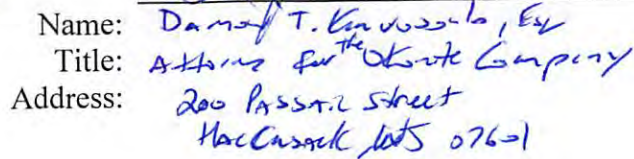 Name: T. Esq
Title: Attorney for the Okonite Company
Address: 200 Passaic Street
Hackensack 07601